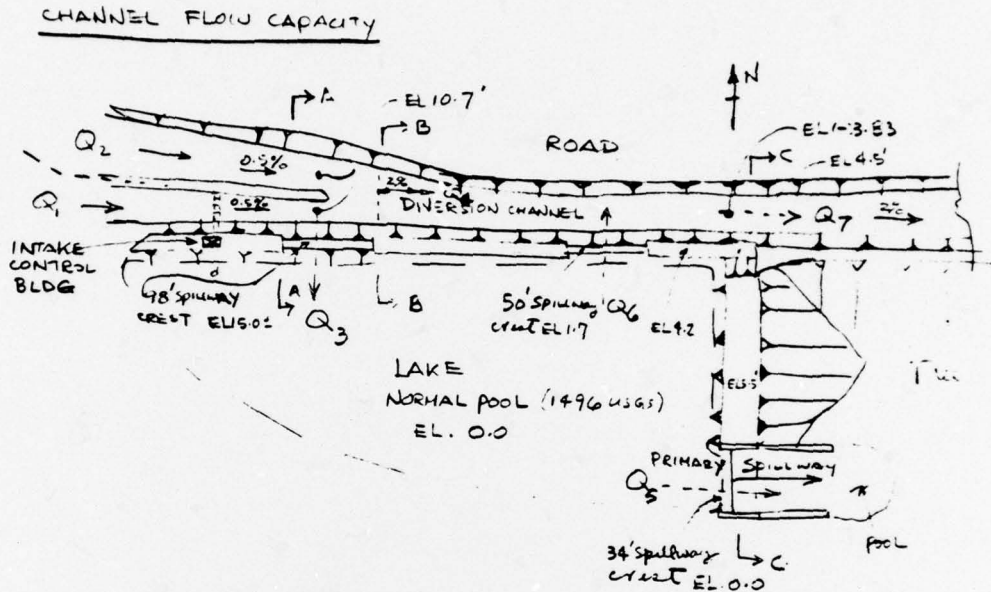 CHANNEL FLOW CAPACITY
A
EL 10.7'
B
N
ROAD
EL 4.5'
C
Q2
0.5%
2%
Q1
0.5%
DIVERSION CHANNEL
Q7
2%
INTAKE
CONTROL
BLDG
98' SPILLWAY
CREST EL 15.0±
A
Q3
B
50' Spillway Q6
crest EL 1.7
EL 4.2
LAKE
NORMAL POOL (1496 USGS)
EL. 0.0
PRIMARY SPILLWAY
Q5
POOL
34' Spillway
crest EL. 0.0
C